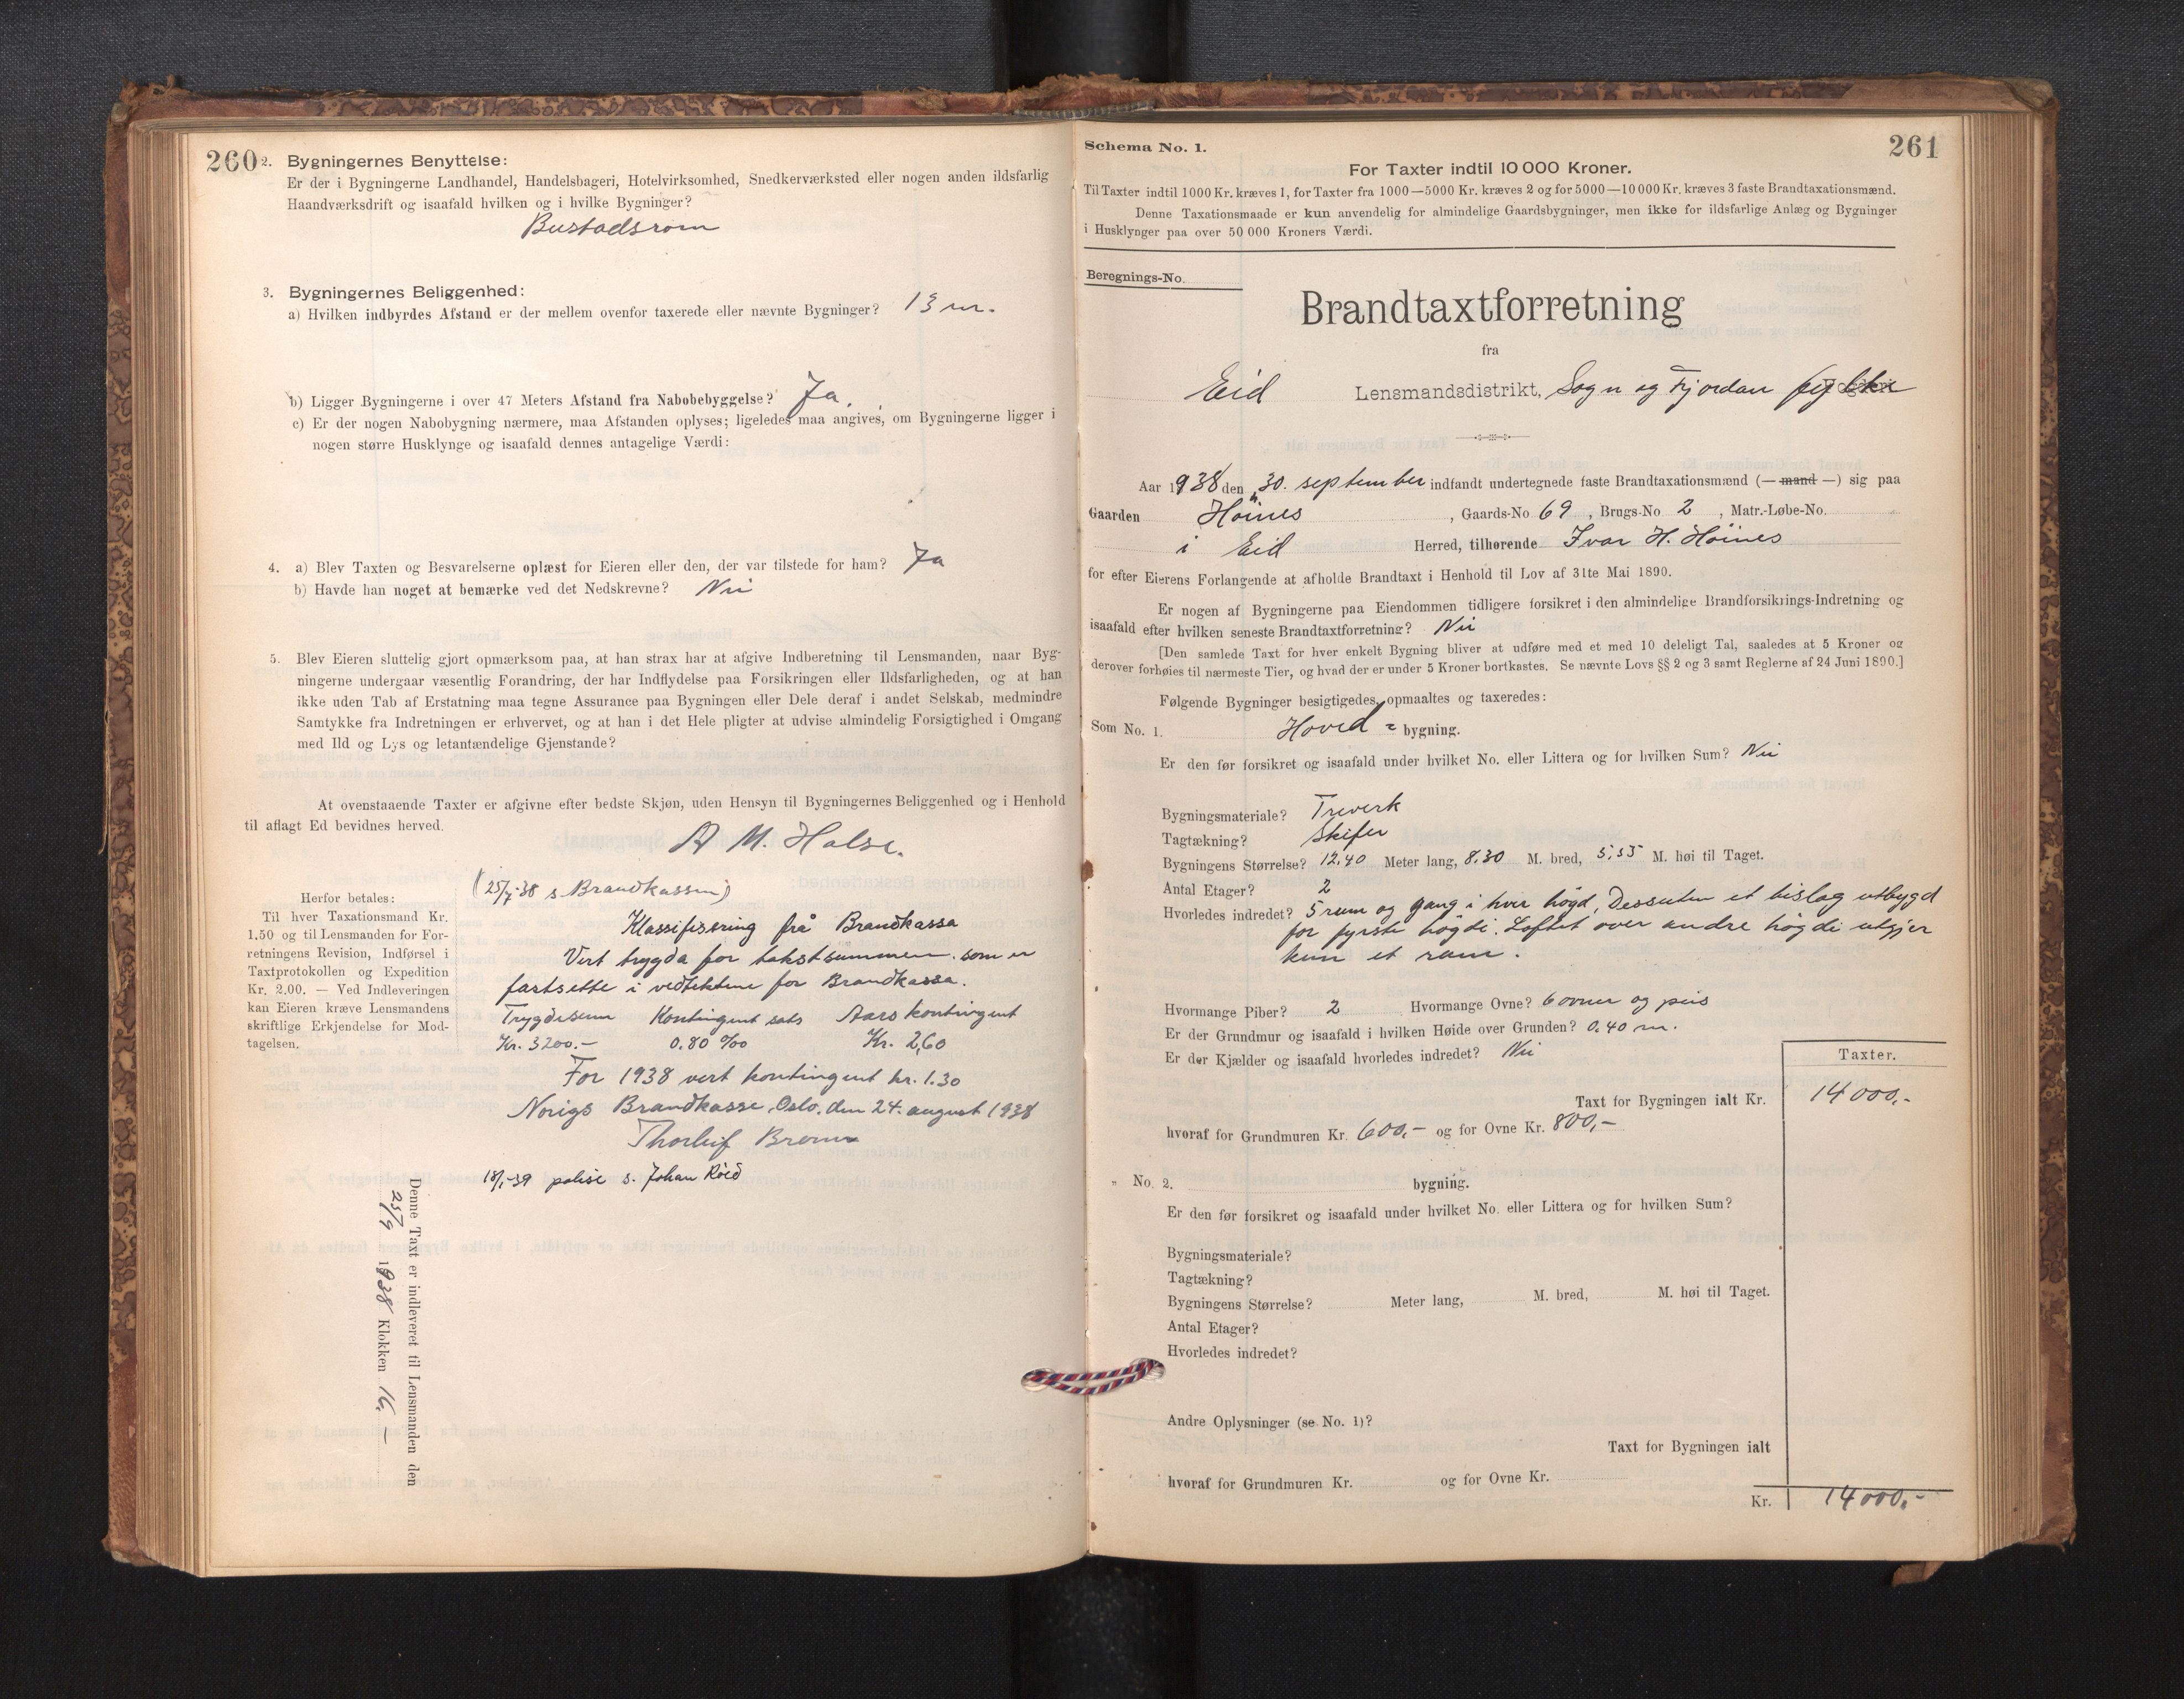 260
2. Bygningernes Benyttelse:
Er der i Bygningerne Landhandel, Handelsbageri, Hotelvirksomhed, Snedkerværksted eller nogen anden ildsfarlig
Haandværksdrift og isaafald hvilken og i hvilke Bygninger?
Bustadsrom
3. Bygningernes Beliggenhed:
a) Hvilken indbyrdes Afstand er der mellem ovenfor taxerede eller nævnte Bygninger? 13 m.
b) Ligger Bygningerne i over 47 Meters Afstand fra Nabobebyggelse? Ja.
c) Er der nogen Nabobygning nærmere, maa Afstanden oplyses; ligeledes maa angives, om Bygningerne ligger i
nogen større Husklynge og isaafald dennes antagelige Værdi:
4. a) Blev Taxten og Besvarelserne oplæst for Eieren eller den, der var tilstede for ham? Ja
b) Havde han noget at bemærke ved det Nedskrevne? Nei
5. Blev Eieren sluttelig gjort opmærksom paa, at han strax har at afgive Indberetning til Lensmanden, naar Byg-
ningerne undergaar væsentlig Forandring, der har Indflydelse paa Forsikringen eller Ildsfarligheden, og at han
ikke uden Tab af Erstatning maa tegne Assurance paa Bygningen eller Dele deraf i andet Selskab, medmindre
Samtykke fra Indretningen er erhvervet, og at han i det Hele pligter at udvise almindelig Forsigtighed i Omgang
med Ild og Lys og letantændelige Gjenstande?
At ovenstaaende Taxter er afgivne efter bedste Skjøn, uden Hensyn til Bygningernes Beliggenhed og i Henhold
til aflagt Ed bevidnes herved.
A M. Halse.
(25/7-38 s. Brandkassen)
Herfor betales:
Til hver Taxationsmand Kr.
1.50 og til Lensmanden for For-
retningens Revision, Indførsel i
Taxtprotokollen og Expedition
Kr. 2.00. — Ved Indleveringen
kan Eieren kræve Lensmandens
skriftlige Erkjendelse for Mod-
tagelsen.
Klassifisering frå Brandkassa
Vert trygda for takstsummen som er
fastsette i vedtektene for Brandkassa.
Trygdesum Kontingent sats Aars kontingent
Kr. 3200.- 0.80 ‰ Kr. 2,60
For 1938 vert kontingent kr. 1.30
Norigs Brandkasse, Oslo, den 24. august 1938
Thorleif
18/1-39 polise s. Johan
Denne Taxt er indleveret til Lensmanden den
25/9 1938 Klokken 16.—
Schema No. 1.
261
For Taxter indtil 10 000 Kroner.
Til Taxter indtil 1000 Kr. kræves 1, for Taxter fra 1000—5000 Kr. kræves 2 og for 5000—10000 Kr. kræves 3 faste Brandtaxationsmænd.
Denne Taxationsmaade er kun anvendelig for almindelige Gaardsbygninger, men ikke for ildsfarlige Anlæg og Bygninger
i Husklynger paa over 50 000 Kroners Værdi.
Beregnings-No.
Brandtaxtforretning
fra
Eid Lensmandsdistrikt, Sogn og Fjordan fylke Fogderi
Aar 1938 den 30. september indfandt undertegnede faste Brandtaxationsmænd (— mand —) sig paa
Gaarden Höines, Gaards-No 69, Brugs-No 2, Matr.-Løbe-No.
i Eid Herred, tilhørende Ivar H. Höines
for efter Eierens Forlangende at afholde Brandtaxt i Henhold til Lov af 31te Mai 1890.
Er nogen af Bygningerne paa Eiendommen tidligere forsikret i den almindelige Brandforsikrings-Indretning og
isaafald efter hvilken seneste Brandtaxtforretning? Nei
[Den samlede Taxt for hver enkelt Bygning bliver at udføre med et med 10 deleligt Tal, saaledes at 5 Kroner og
derover forhøies til nærmeste Tier, og hvad der er under 5 Kroner bortkastes. Se nævnte Lovs §§ 2 og 3 samt Reglerne af 24 Juni 1890.]
Følgende Bygninger besigtigedes, opmaaltes og taxeredes:
Som No. 1. Hoved = bygning.
Er den før forsikret og isaafald under hvilket No. eller Littera og for hvilken Sum? Nei
Bygningsmateriale? Treverk
Tagtækning? Skifer
Bygningens Størrelse? 12.40 Meter lang, 8.30 M. bred, 5.55 M. høi til Taget.
Antal Etager? 2
Hvorledes indredet? 5 rum og gang i hver högd, Dessuten et bislag utbygd
for fyrste högdi. Loftet over andre högdi utgjer
kun et rom.
Hvormange Piber? 2 Hvormange Ovne? 6 ovner og peis
Er der Grundmur og isaafald i hvilken Høide over Grunden? 0.40 m.
Er der Kjælder og isaafald hvorledes indredet? Nei
Taxter.
Taxt for Bygningen ialt Kr. 14000,-
hvoraf for Grundmuren Kr. 600,- og for Ovne Kr. 800,-
„ No. 2. bygning.
Er den før forsikret og isaafald under hvilket No. eller Littera og for hvilken Sum?
Bygningsmateriale?
Tagtækning?
Bygningens Størrelse? Meter lang, M. bred, M. høi til Taget.
Antal Etager?
Hvorledes indredet?
Andre Oplysninger (se No. 1)?
Taxt for Bygningen ialt
hvoraf for Grundmuren Kr. og for Ovne Kr.
Kr. 14000,-